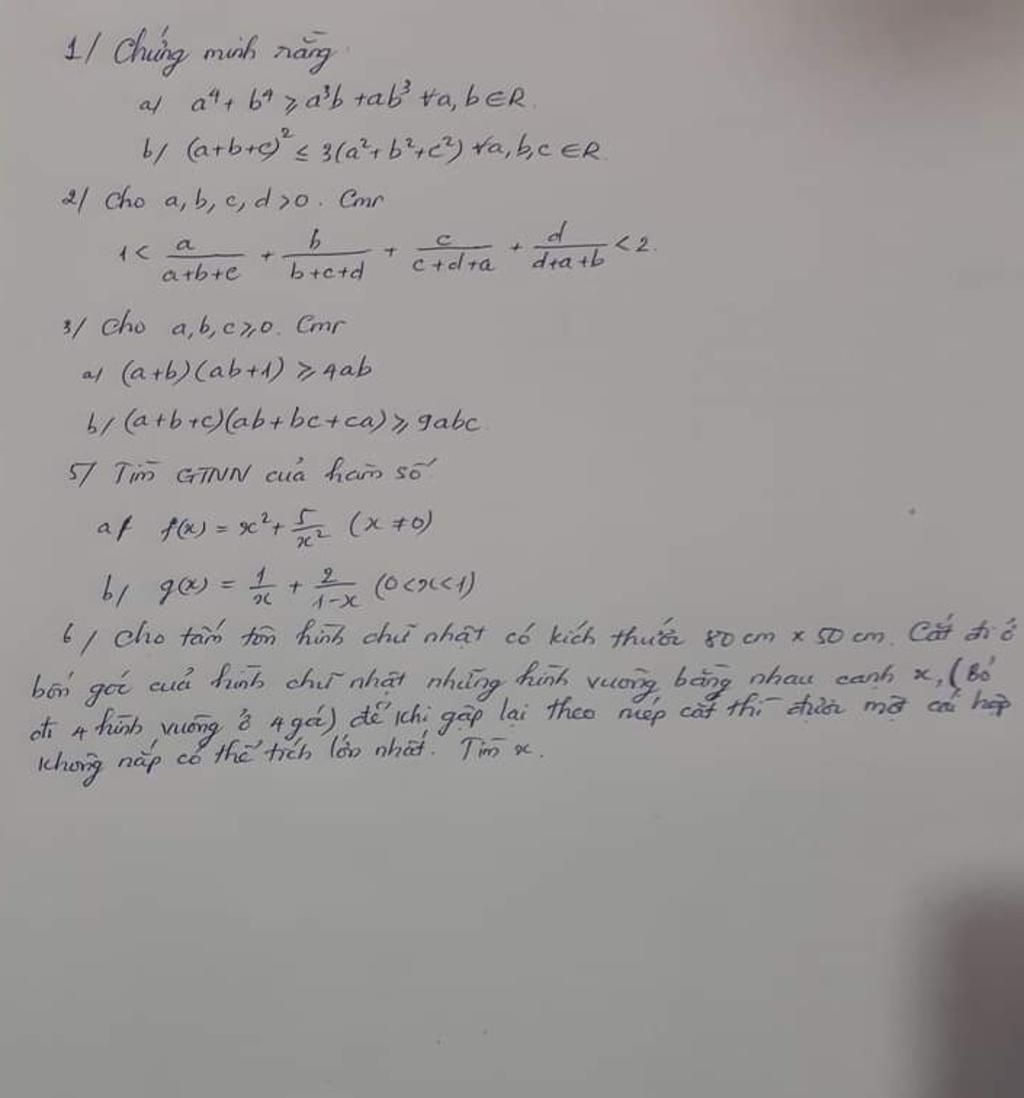 1/ Chứng minh rằng
a/ a⁴ + b⁴ ⩾ a³b + ab³ ∀a, b ∈ R.
b/ (a+b+c)² ≤ 3(a²+b²+c²) ∀a, b, c ∈ R
2/ Cho a, b, c, d > 0. Cmr
1 < a/(a+b+c) + b/(b+c+d) + c/(c+d+a) + d/(d+a+b) < 2.
3/ Cho a, b, c ⩾ 0. Cmr
a/ (a+b)(ab+1) ⩾ 4ab
b/ (a+b+c)(ab+bc+ca) ⩾ 9abc
5/ Tìm GTNN của hàm số
a/ f(x) = x² + 5/x² (x ≠ 0)
b/ g(x) = 1/x + 2/(1-x) (0<x<1)
6/ Cho tấm tôn hình chữ nhật có kích thước 80 cm x 50 cm. Cắt đi ở
bốn góc của hình chữ nhật những hình vuông bằng nhau cạnh x, (Bỏ
đi 4 hình vuông ở 4 góc) để khi gập lại theo mép cắt thì được một cái hộp
không nắp có thể tích lớn nhất. Tìm x.